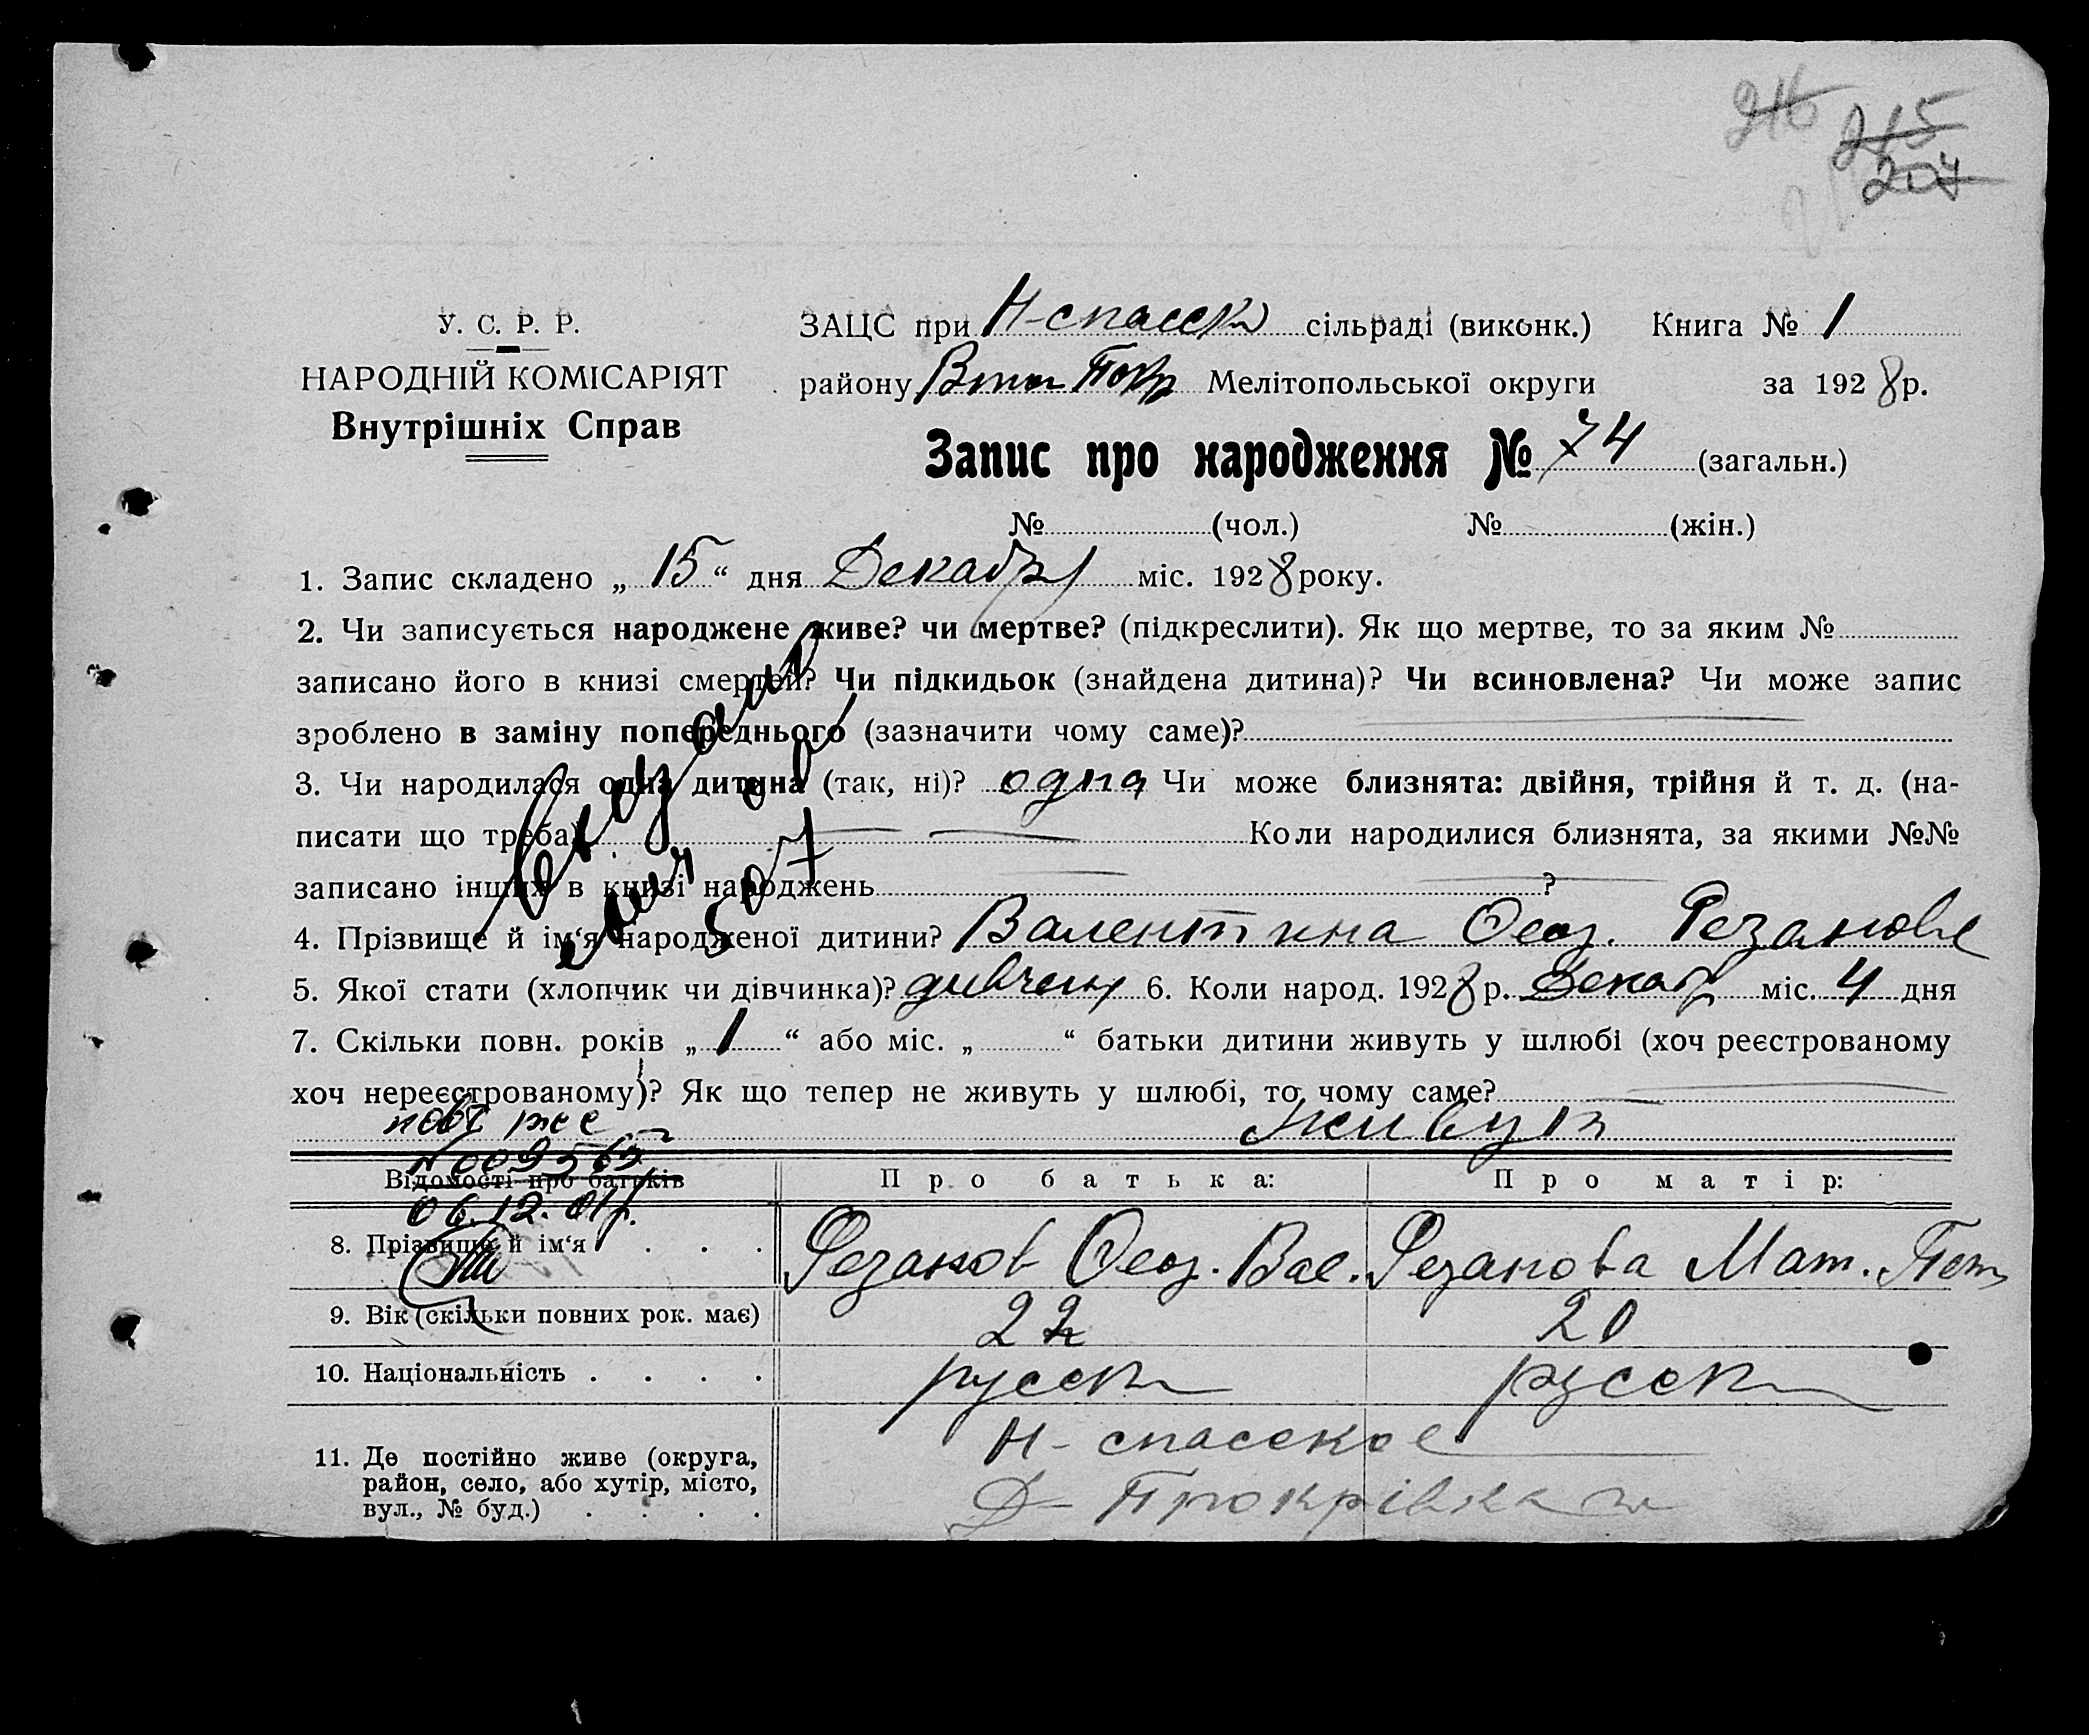 216
215
204
У. С. Р. Р.
НАРОДНІЙ КОМІСАРІЯТ
Внутрішніх Справ
ЗАЦС при Н-спасск сільраді (виконк.) Книга № 1
району Мелітопольської округи за 1928 р.
Запис про народження № 74 (загальн.)
№ (чол.) № (жін.)
1. Запис складено „ 15 “ дня Декабр міс. 1928 року.
2. Чи записується народжене живе? чи мертве? (підкреслити). Як що мертве, то за яким №
записано його в книзі смертей? Чи підкидьок (знайдена дитина)? Чи всиновлена? Чи може запис
зроблено в заміну попереднього (зазначити чому саме)?
3. Чи народилася одна дитина (так, ні)? одна Чи може близнята: двійня, трійня й т. д. (на-
писати що треба) Коли народилися близнята, за якими №№
записано інших в книзі народжень ?
4. Прізвище й ім‘я народженої дитини? Валентина Феоз. Резанова
5. Якої стати (хлопчик чи дівчинка)? 6. Коли народ. 1928 р. Декабр міс. 4 дня
7. Скільки повн. років „ 1 “ або міс. „ “ батьки дитини живуть у шлюбі (хоч реєстрованому
хоч нереєстрованому)? Як що тепер не живуть у шлюбі, то чому саме?
живут
06.12.01р.
Відомості про батьків Про батька: Про матір:
8. Прізвище й ім‘я . . . Резанов Феоз. Вас. Резанова Мат. Пет
9. Вік (скільки повних рок. має) 22 20
10. Національність . . . . русск русск
11. Де постійно живе (округа,
район, село, або хутір, місто,
вул., № буд.) . . . .
Н-спасское